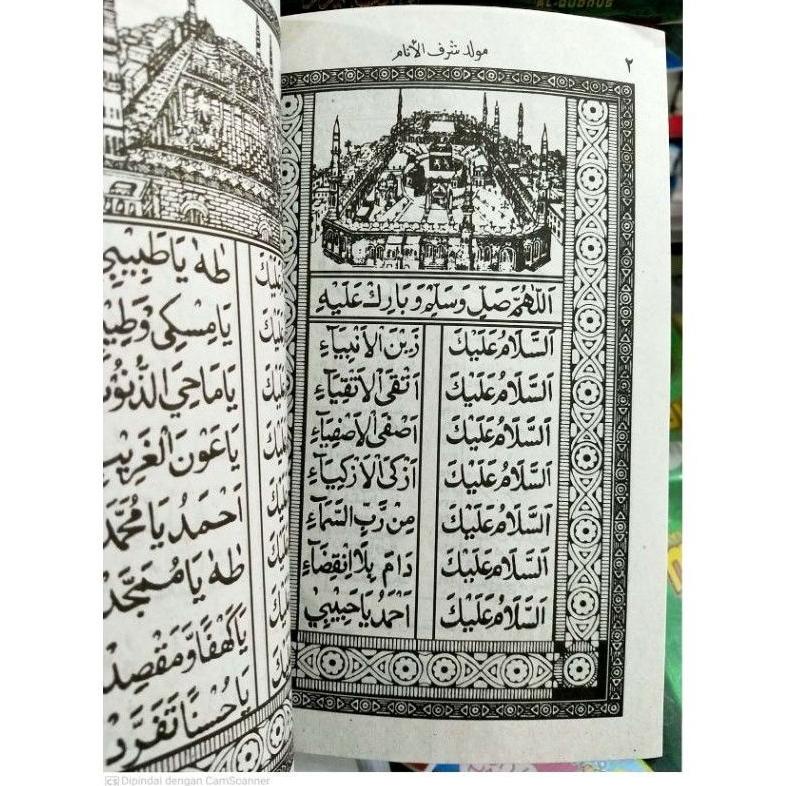 مولد شرف الأنام
٢
اَللّٰهُمَّ صَلِّ وَسَلِّمْ وَبَارِكْ عَلَيْهِ
اَلسَّلَامُ عَلَيْكَ زَيْنَ الْاَنْبِيَآءِ
اَلسَّلَامُ عَلَيْكَ اَتْقَى الْاَتْقِيَآءِ
اَلسَّلَامُ عَلَيْكَ اَصْفَى الْاَصْفِيَآءِ
اَلسَّلَامُ عَلَيْكَ اَزْكَى الْاَزْكِيَآءِ
اَلسَّلَامُ عَلَيْكَ مِنْ رَّبِّ السَّمَآءِ
اَلسَّلَامُ عَلَيْكَ دَامَ بِلَا انْقِضَآءِ
اَلسَّلَامُ عَلَيْكَ اَحْمَدُ يَا حَبِيْبِيْ
طٰهٰ يَا طَبِيْبِيْ
يَا مِسْكِى
يَا مَاحِيَ
يَا عَوْنَ الْغَرِيْبِ
اَحْمَدُ يَا مُحَمَّدْ
طٰهٰ يَا مُمَجَّدْ
يَا كَهْفًا وَّمَقْصِدْ
يَا حُسْنًا تَفَرَّدْ
Dipindai dengan CamScanner